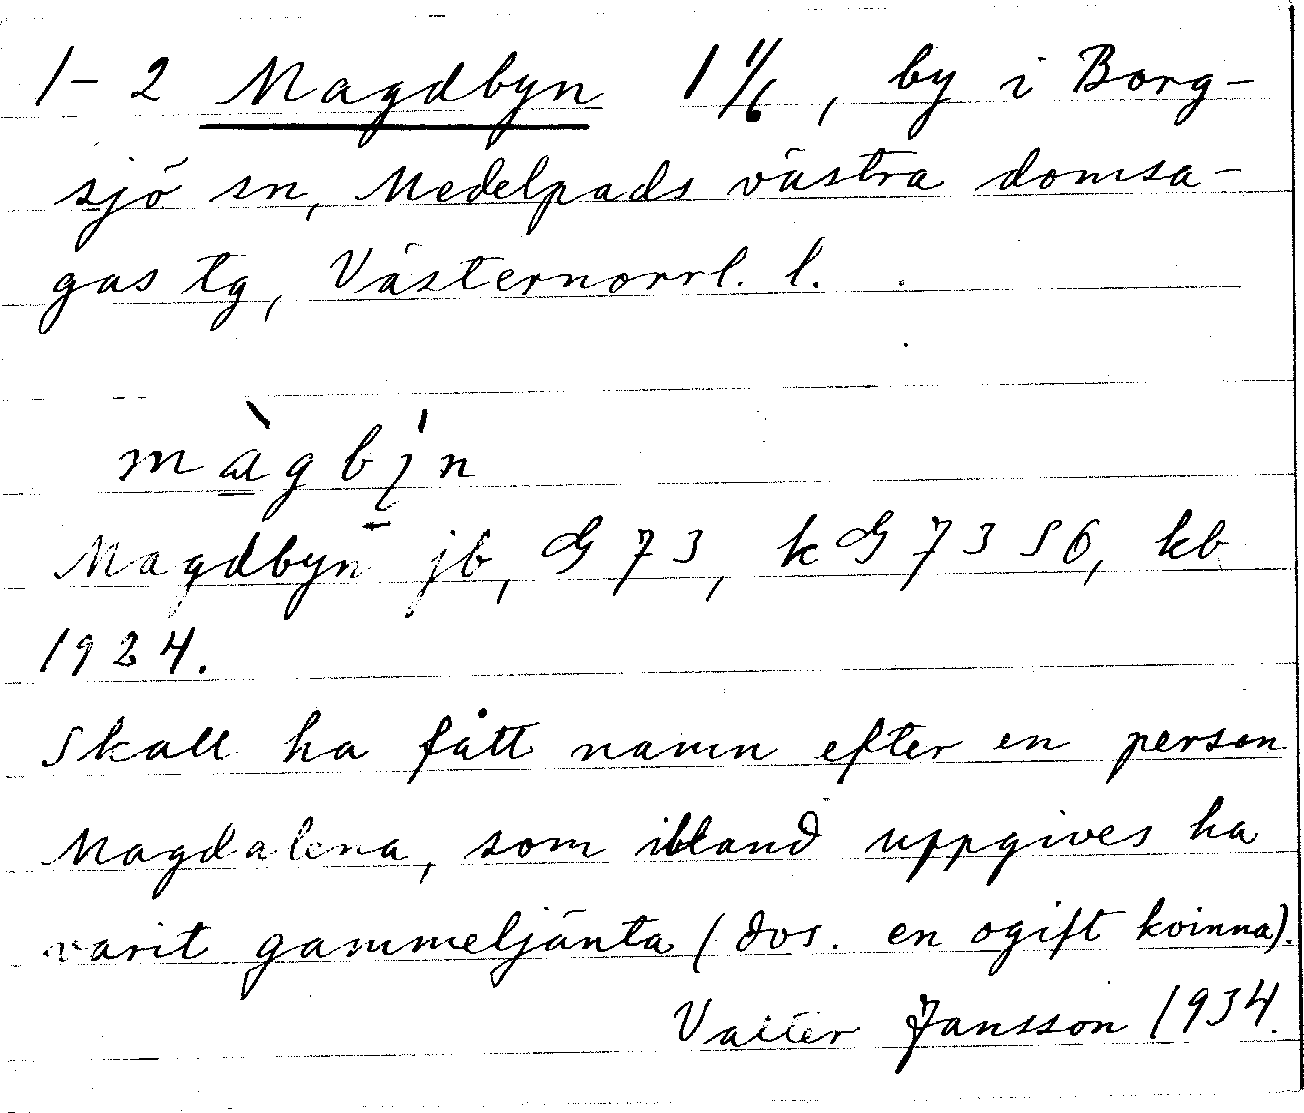 1-2 Magdbyn 1 1/6, by i Borg-
sjö sn, Medelpads västra domsa-
gas tg, Västernorrl. l.
màgbýn
Magdbyn jb, G 73, kG 73 S6, kb
1924.
Skall ha fått namn efter en person
Magdalena, som ibland uppgives ha
varit gammeljänta (dvs. en ogift kvinna).
Valter Jansson 1934.